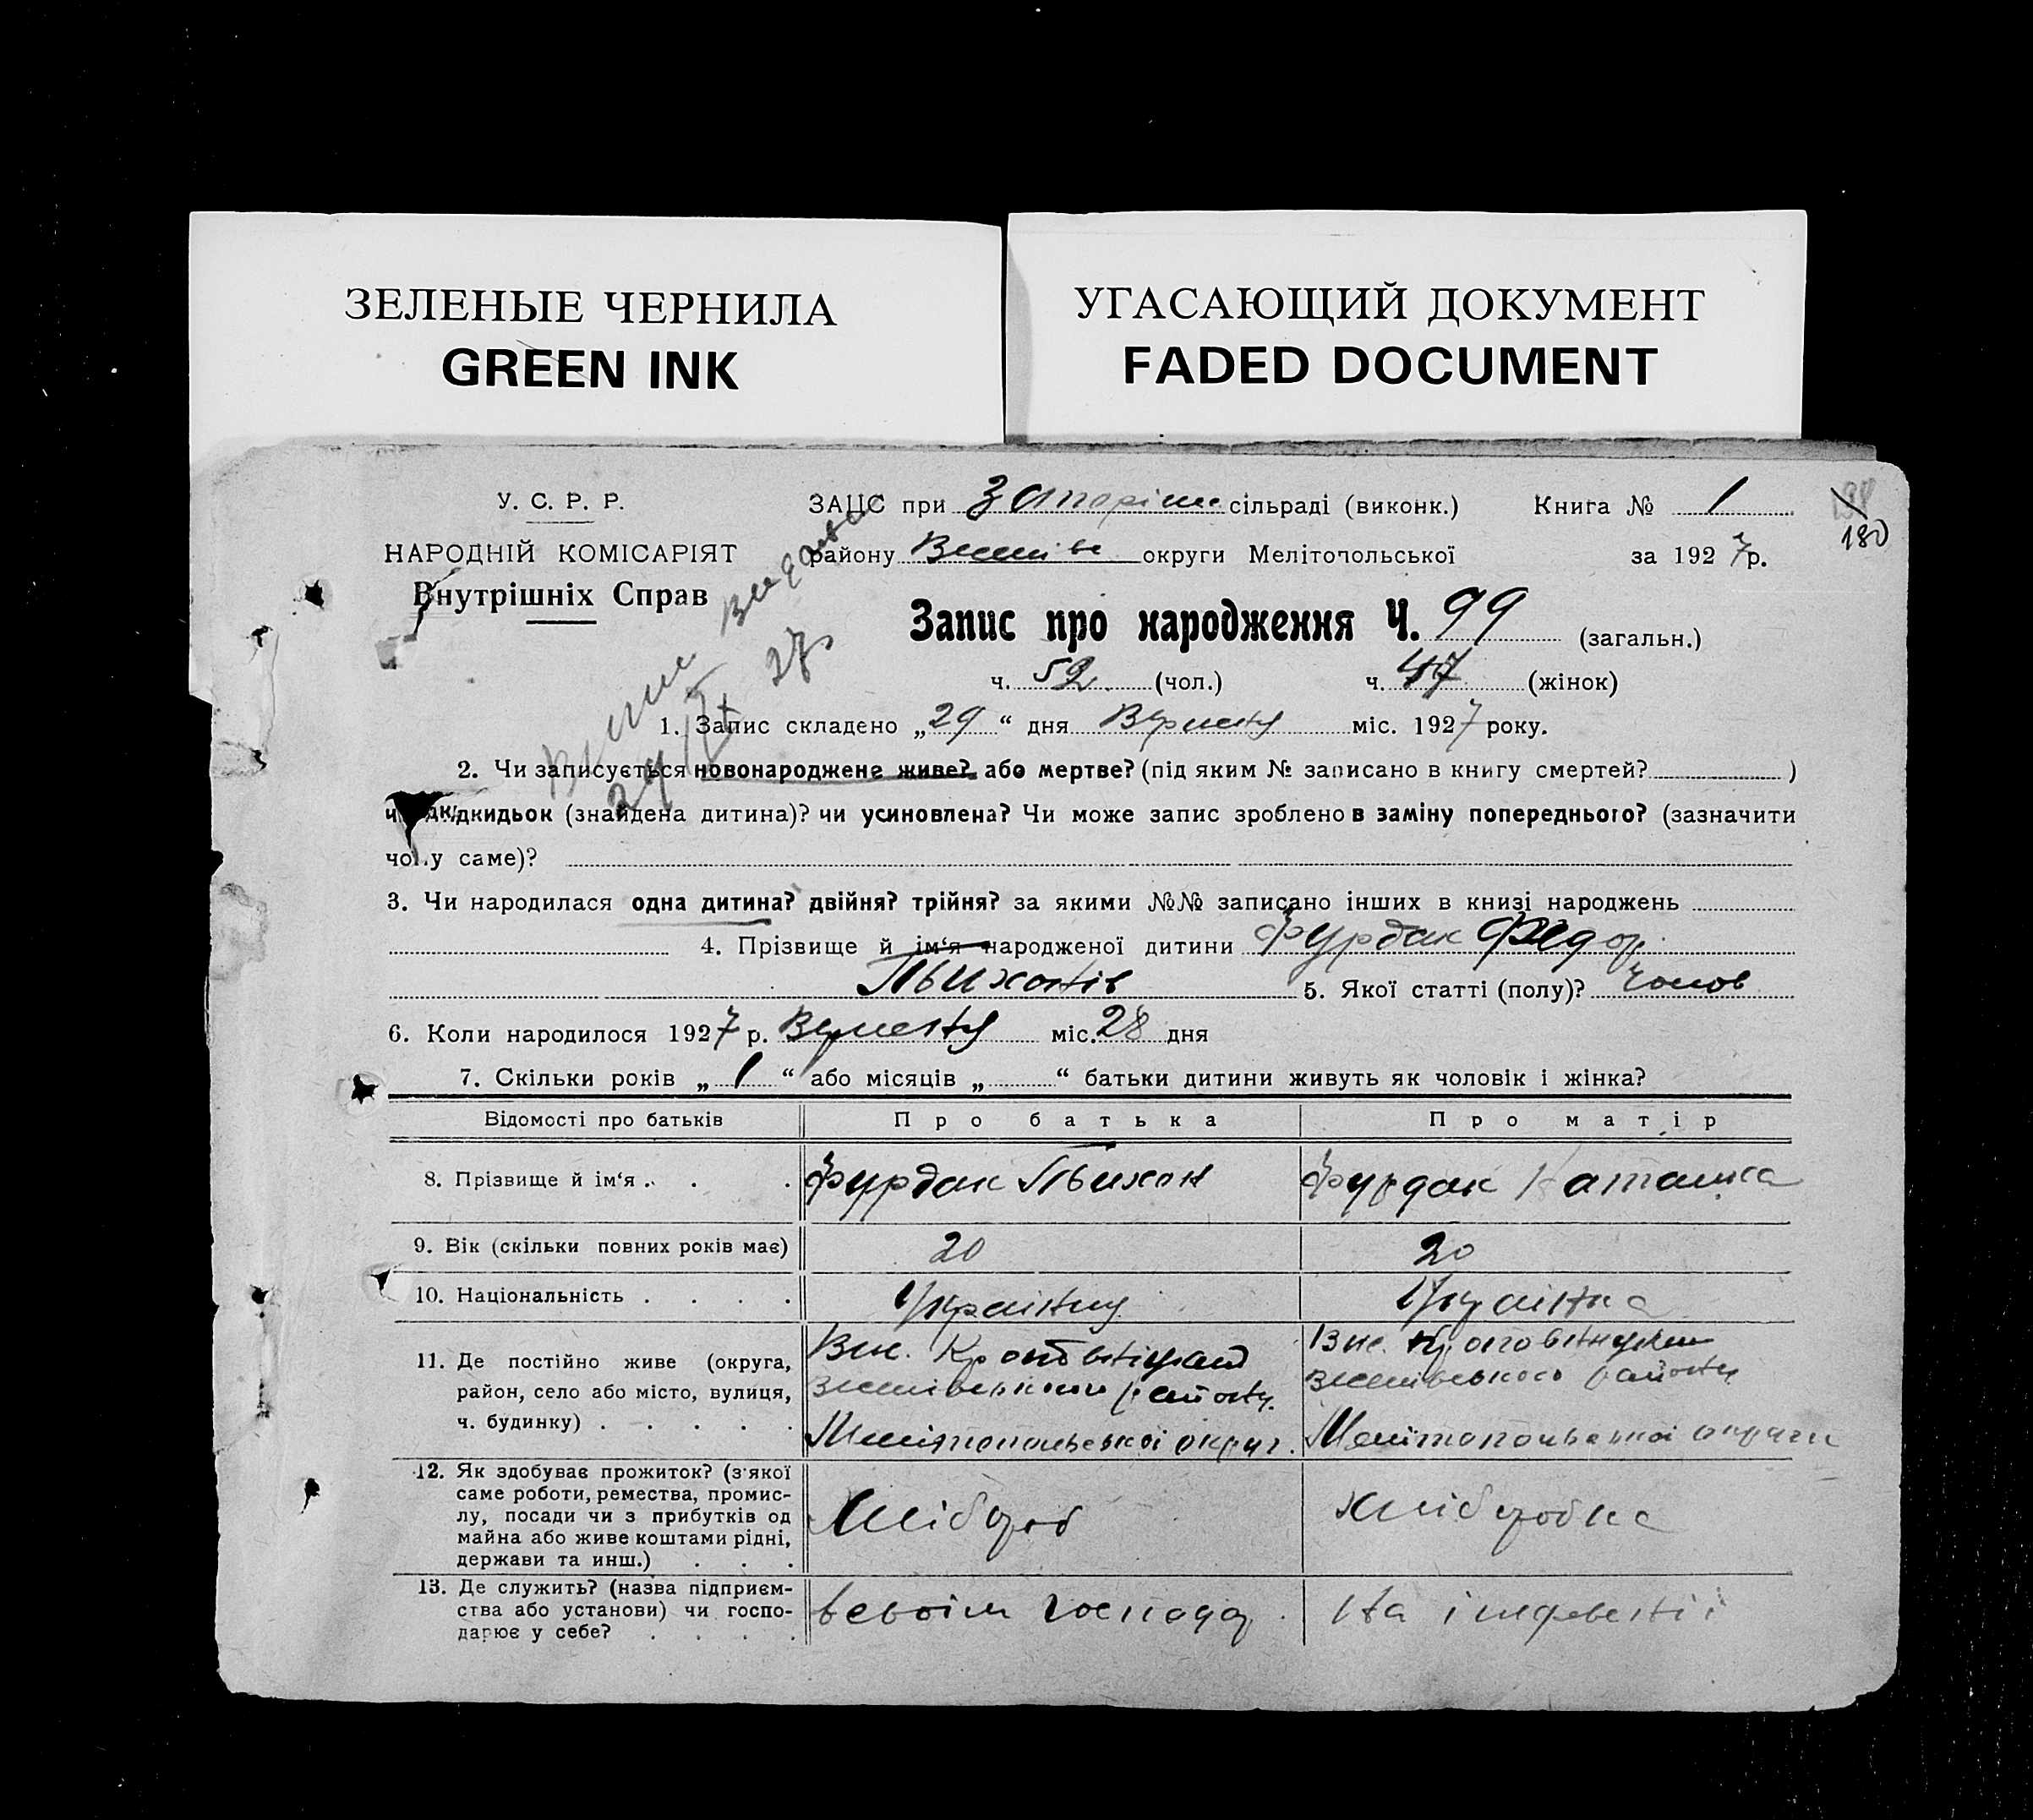 ЗЕЛЕНЫЕ ЧЕРНИЛА
GREEN INK
УГАСАЮЩИЙ ДОКУМЕНТ
FADED DOCUMENT
У. С. Р. Р.
НАРОДНІЙ КОМІСАРІЯТ
Внутрішніх Справ
ЗАЦС при сільраді (виконк.) Книга № 1
180
району округи Мелітопольської за 1927 р.
Запис про народження Ч. 99 (загальн.)
ч. 52 (чол.) ч. 47 (жінок)
1. Запис складено „29“ дня Вересня міс. 1927 року.
2. Чи записується новонароджене живе? або мертве? (під яким № записано в книгу смертей? )
дкидьок (знайдена дитина)? чи усиновлена? Чи може запис зроблено в заміну попереднього? (зазначити
чому саме)?
3. Чи народилася одна дитина? двійня? трійня? за якими №№ записано інших в книзі народжень
4. Прізвище й ім‘я народженої дитини Фурдак Федор
Тихонів 5. Якої статті (полу)? Чолов
6. Коли народилося 1927 р. Вересня міс. 28 дня
7. Скільки років „1“ або місяців „ “ батьки дитини живуть як чоловік і жінка?
Відомості про батьків Про батька Про матір
8. Прізвище й ім‘я . . . Фурдак Тихон Фурдак Наталка
9. Вік (скільки повних років має) 20 20
10. Національність . . . . Українец Українка
11. Де постійно живе (округа,
район, село або місто, вулиця,
ч. будинку) . . . . .
району
району
Мелітопольської округ. Мелітопольської округи
12. Як здобуває прожиток? (з якої
саме роботи, ремества, промис-
лу, посади чи з прибутків од
майна або живе коштами рідні,
держави та инш.) . . .
Хлібороб хліборобка
13. Де служить? (назва підприєм-
ства або установи) чи госпо-
дарює у себе? . . . .
всвоїм господар. На